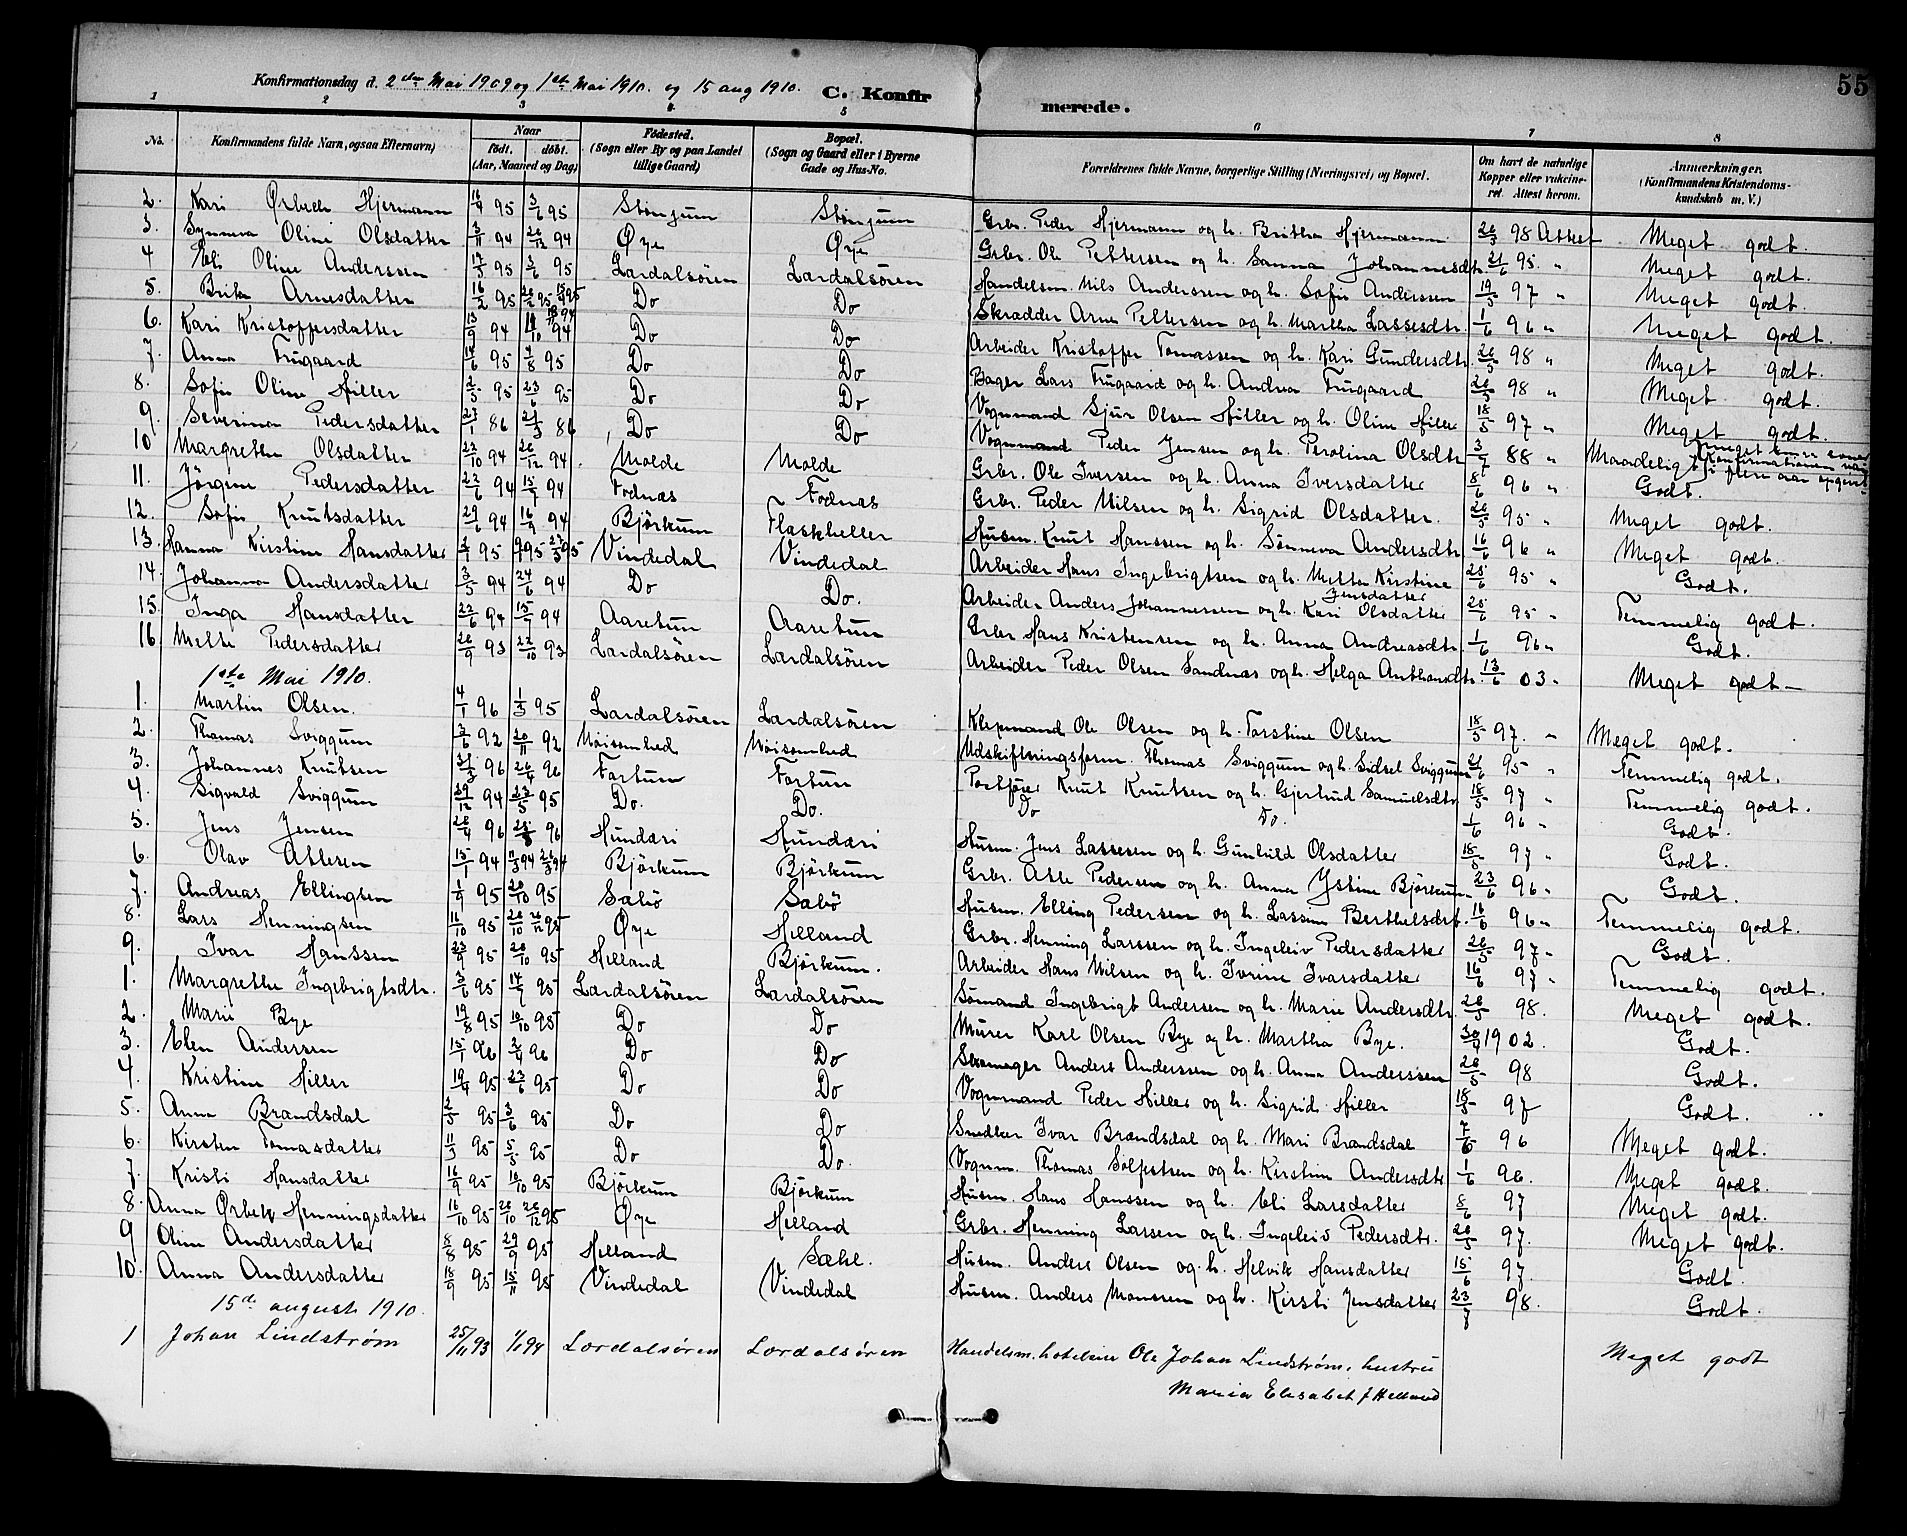 55
Konfirmationsdag d. 2den Mai 1909 og 1ste Mai 1910. og 15 aug 1910. C. Konfirmerede.
1 2 3 4 5 6 7 8
No. Konfirmandens fulde Navn, ogsaa Efternavn) Naar født. døbt. (Aar, Maaned og Dag) Fødested. (Sogn eller By og paa Landet tillige Gaard) Bopæl. (Sogn og Gaard eller i Byerne Gade og Hus-No. Forældrenes fulde Navne, borgerlige Stilling (Næringsvei) og Bopæl. Om havt de naturlige Kopper eller vakcineret. Attest herom. Anmærkninger. (Konfirmandens Kristendomskundskab m. V.)
2. Kari Ørbech Hjermann 16/4 95 3/6 95 Stønjum Stønjum Grbr. Peder Hjermann og h. Britha Hjermann 26/5 98 Attest Meget godt.
3. Synneva Oline Olsdatter 3/11 94 26/12 94 Øye Øye Grbr. Ole Pettersen og h. Sanna Johannesdtr. 21/6 95. " Meget godt.
4 Eli Oline Anderssen 17/3 95 3/6 95 Lærdalsören Lærdalsören Handelsm. Nils Anderssen og h. Sofie Anderssen 19/5 97 " Meget godt.
5. Brita Arnesdatter 16/2 95 Do Do Skrædder Arne Pettersen og h. Martha Lassesdtr. 1/6 96 " Meget godt.
6. Kari Kristoffersdatter 13/9 94 94 Do Do Arbeider Kristoffer Tomassen og h. Kari Gundersdtr. 26/5 98 " Meget godt.
7. Anna Frugaard 14/6 95 4/8 95 Do Do Bager Lars Frugaard og h. Andrea Frugaard 26/5 98 " Meget godt.
8. Sofie Oline Hiller 2/5 95 23/6 95 Do Do Vognmand Sjur Olsen Hiller og h. Oline Hiller 18/5 97 " Meget godt.
9. Severina Pedersdatter 27/1 86 21/3 86 Do Do Vognmand Peder Jensen og h. Perolina Olsdtr 3/7 88 " Maadelig
10 Margrethe Olsdatter 22/10 94 26/12 94. Molde Molde Grbr. Ole Iversen og h. Anna Iversdatter 8/6 96 " Godt.
11. Jörgine Pedersdatter 22/6 94 15/7 94 Fodnæs Fodnæs Grbr. Peder Nilsen og h. Sigrid Olsdatter. 26/5 95 " Meget godt.
12. Sofie Knutsdatter 29/6 94 16/9 94 Björkum Flaskheller Husm. Knut Hanssen og h. Sønneva Andersdtr 16/6 96 " Meget godt.
13. Hanna Kirstine Hansdatter 2/1 95 Vindedal Vindedal Arbeider Hans Ingebrigtsen og h. Mette Kirstine Jensdatter 28/6 95 " Godt.
14. Johanna Andersdatter 3/5 94 24/6 94 Do Do. Arbeider Anders Johannesen og h. Kari Olsdatter 28/6 95 " Temmelig godt.
15. Inga Hansdatter 22/6 94 15/7 94 Aaretun Aaretun Grbr Hans Kristensen og h. Anna Andreasdtr. 1/6 96 " Godt.
16. Mette Pedersdatter 20/9 93 22/10 93 Lærdalsören Lærdalsören Arbeider Peder Olsen Sandnæs og h. Helga Anthonsdtr. 13/6 03 " Meget godt
1ste Mai 1910.
1. Martin Olsen. 4/1 96 1/3 95 Lærdalsören Lærdalsören Klepmand Ole Olsen og h. Torstine Olsen 18/5 97. " Meget godt.
2. Thomas Sviggum 3/6 92 20/11 92 Moisomhed Moisomhed Udskiftningsform. Thomas Sviggum og h. Sidsel Sviggum 21/6 95 " Temmelig godt.
3. Johannes Knutsen 31/3 96 26/4 96 Fortun Fortun Postfører Knut Knutsen og h. Gjertrud Samuelsdtr 18/5 97 " Temmelig godt.
4. Sigvald Sviggum 29/12 94 23/5 95 Do. Do. Do Do. 1/6 96 " Godt.
5. Jens Jensen 28/4 96 96 Hundæri Hundæri Husm. Jens Lassesen og h. Gunhild Olsdatter 18/5 97 " Godt.
6. Olav Attesen 15/1 94 Björkum Björkum Grbr. Atte Pedersen og h. Anna Ystine Björkum 23/6 96 " Godt.
7. Andreas Ellingsen 1/9 95 20/10 95 Sælö Sælö Husm. Elling Pedersen og h. Lassine Berthelsdtr. 16/6 96 " Temmelig godt.
8. Lars Henningsen 16/10 95 Øye Helland Grbr. Henning Larssen og h. Ingeleiv Pedersdatter 26/5 97 " Godt.
9. Ivar Hanssen 23/9 95 20/10 95 Helland Björkum. Arbeider Hans Nilsen og h. Ivrine Ivarsdatter 16/6 97 " Temmelig godt.
1. Margrethe Ingebrigtsdtr. 3/6 95 14/7 95 Lærdalsören Lærdalsören Sömand Ingebrigt Andersen og h. Marie Andersdtr. 26/5 98. Meget godt.
2. Marie Bye 19/8 95 10/10 95 Do Do Murer Karl Olsen Bye og h. Martha Bye. 30/9 1902. Godt.
3. Elen Andersen 15/1 96 3/4 96 Do Do Skomager Anders Anderssen og h. Anna Anderssen 26/5 98 Godt.
4. Kristine Hiller 19/4 95 23/6 95 Do Do Vognmand Peder Hiller og h. Sigrid Hiller 18/5 97 Godt.
5. Anna Brandsdal 2/5 95 3/6 95 Do Do Snedker Ivar Brændsdal og h. Mari Brandsdal 7/6 96 Meget godt.
6. Kirsten Tomasdatter 11/3 95 5/5 95 Do Do. Vognm. Thomas Solfestsen og h. Kirstine Andersdtr 1/6 96. Meget godt.
7. Kristi Hansdatter 16/9 95 10/10 95 Björkum Björkum Husm. Hans Hanssen og h. Eli Larsdatter 8/6 97 Meget godt.
8. Anna Ørbek Henningsdatter 16/10 95 Øye Helland Grbr. Henning Larsen og h. Ingeleiv Pedersdtr. 26/5 97. Meget godt.
9 Oline Andersdatter 8/8 95 29/9 95 Helland Sæhl. Husm. Anders Olsen og h. Helvik Hansdatter 15/6 97. Godt.
10. Anna Andersdatter 18/9 95 15/11 95 Vindedal Vindedal Husm. Anders Monssen og h. Kirsti Jensdatter 23/7 98. Godt.
15de august 1910.
1 Johan Lindstrøm 25/11 93 1/1 94 Lærdalsören Lærdalsören Handelsm. hoteleier Ole Johan Lindstrøm, hustru Meget godt
Maria Elisabet f Helland